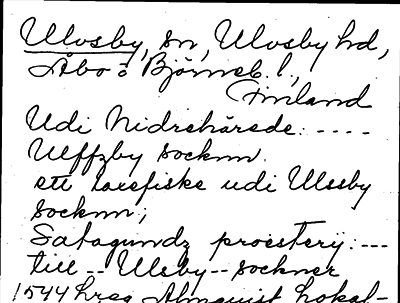 Ulvsby, sn, Ulvsby hd,
Åbo o Björneb. l.,
Finland
Udi Nidrehärede: ----
Ulffzby socknn.
ett laxefiske udi Ulssby
socknn;
Satagundz proesterij: ---
till -- Ulsby -- sockner
1544 hrsg Almquist Lokal-